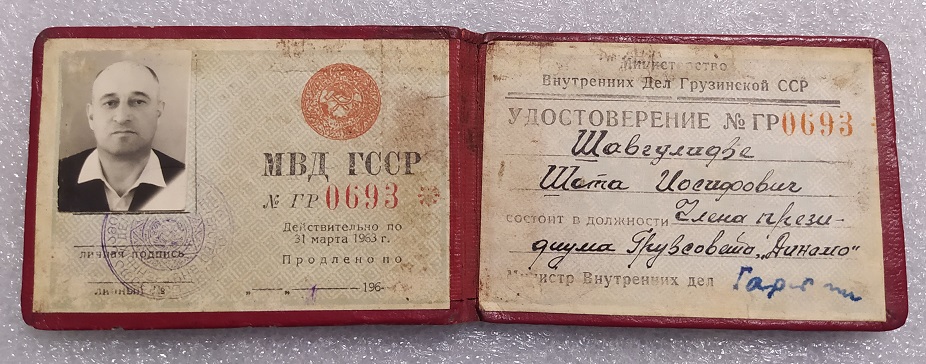 МВД ГССР
№ ГР 0693
Действительно по
31 марта 1963 г.
Продлено по
личная подпись
личный №
„ „ 196
Министерство
Внутренних Дел Грузинской ССР
УДОСТОВЕРЕНИЕ № ГР 0693
Шавгулидзе
Шота Иосифович
состоит в должности Члена прези-
диума Грузсовета „Динамо“
Министр Внутренних дел